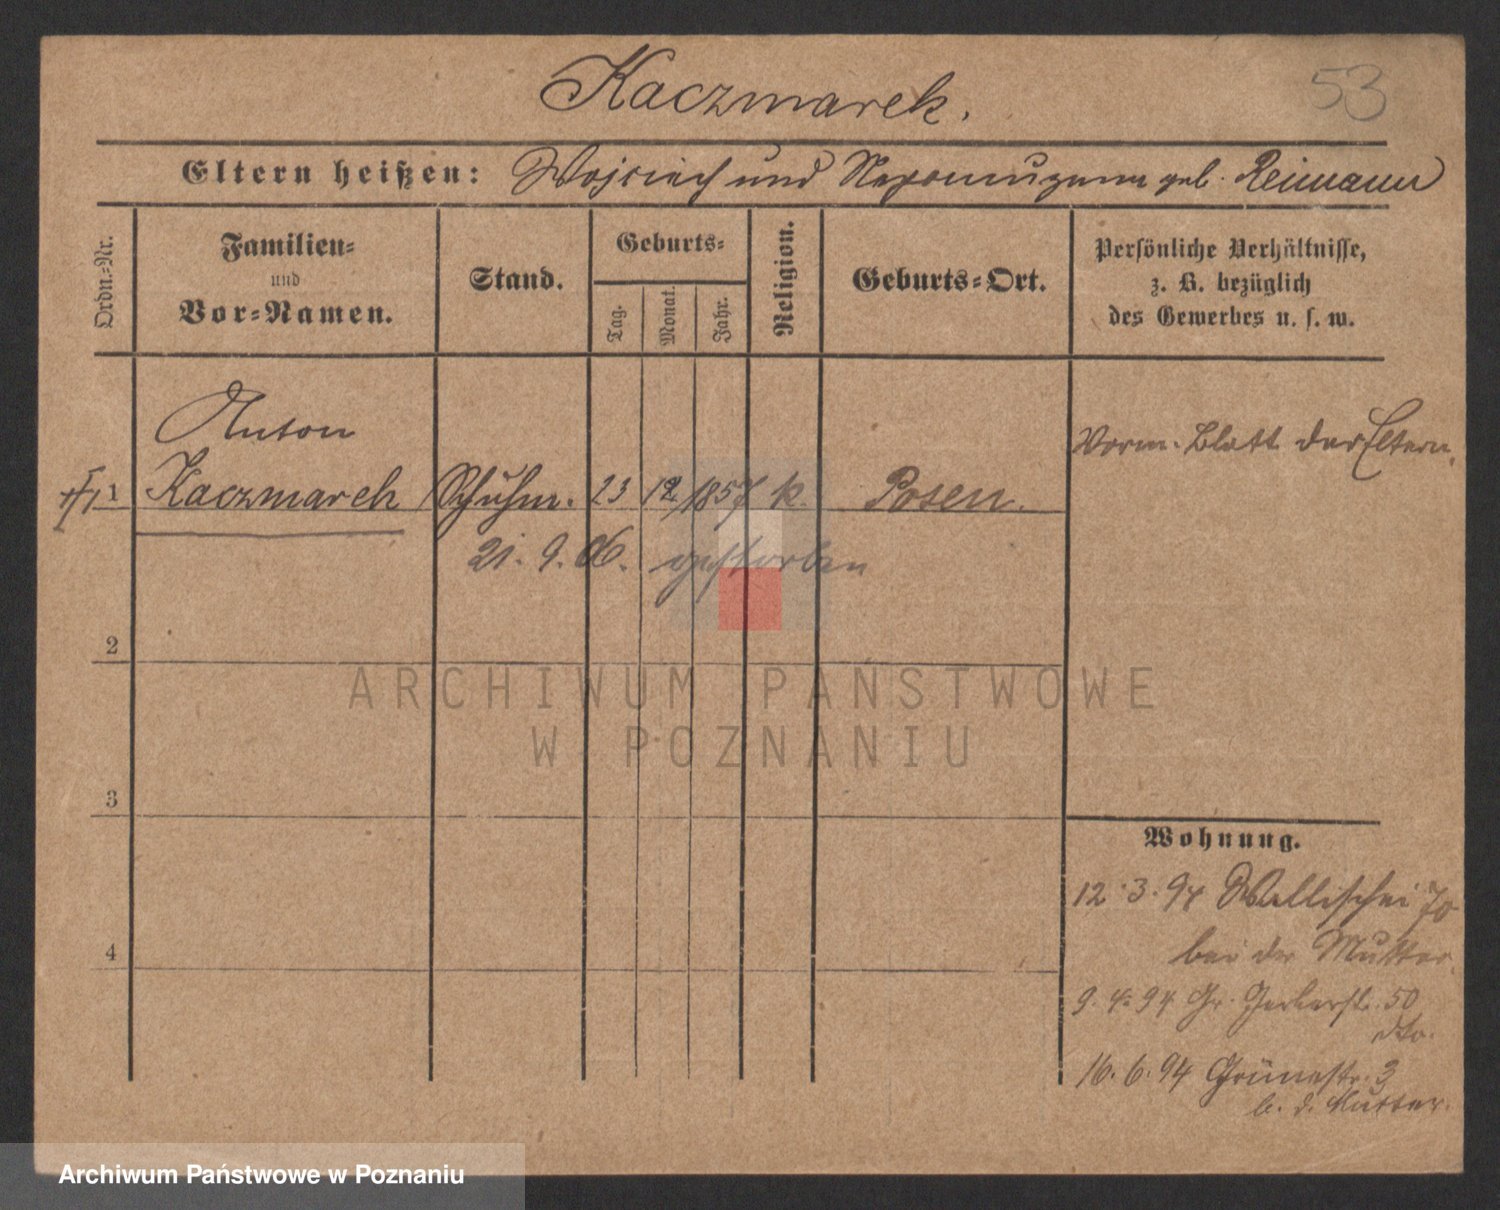 53
Kaczmarek.
Eltern heißen: Wojciech und Nepomuzena geb. Reimann
Ordn.-Nr.
Familien-
und
Vor-Namen.
Stand.
Geburts-
Tag.
Monat.
Jahr.
Religion.
Geburts-Ort.
Persönliche Verhältnisse,
z. B. bezüglich
des Gewerbes u. s. w.
Anton
Vorm. Blatt der Eltern.
1 Kaczmarek Schuhm. 23 12 1857 k. Posen.
21. 9. 06. gestorben
2
ARCHIWUM PAŃSTWOWE
W POZNANIU
3
Wohnung.
12.3.94 Wallischei 70
bei der Mutter.
4
9.4.94 Gr. Gerberstr. 50
dto.
16.6.94 Grünestr. 3
b. d. Mutter.
Archiwum Państwowe w Poznaniu